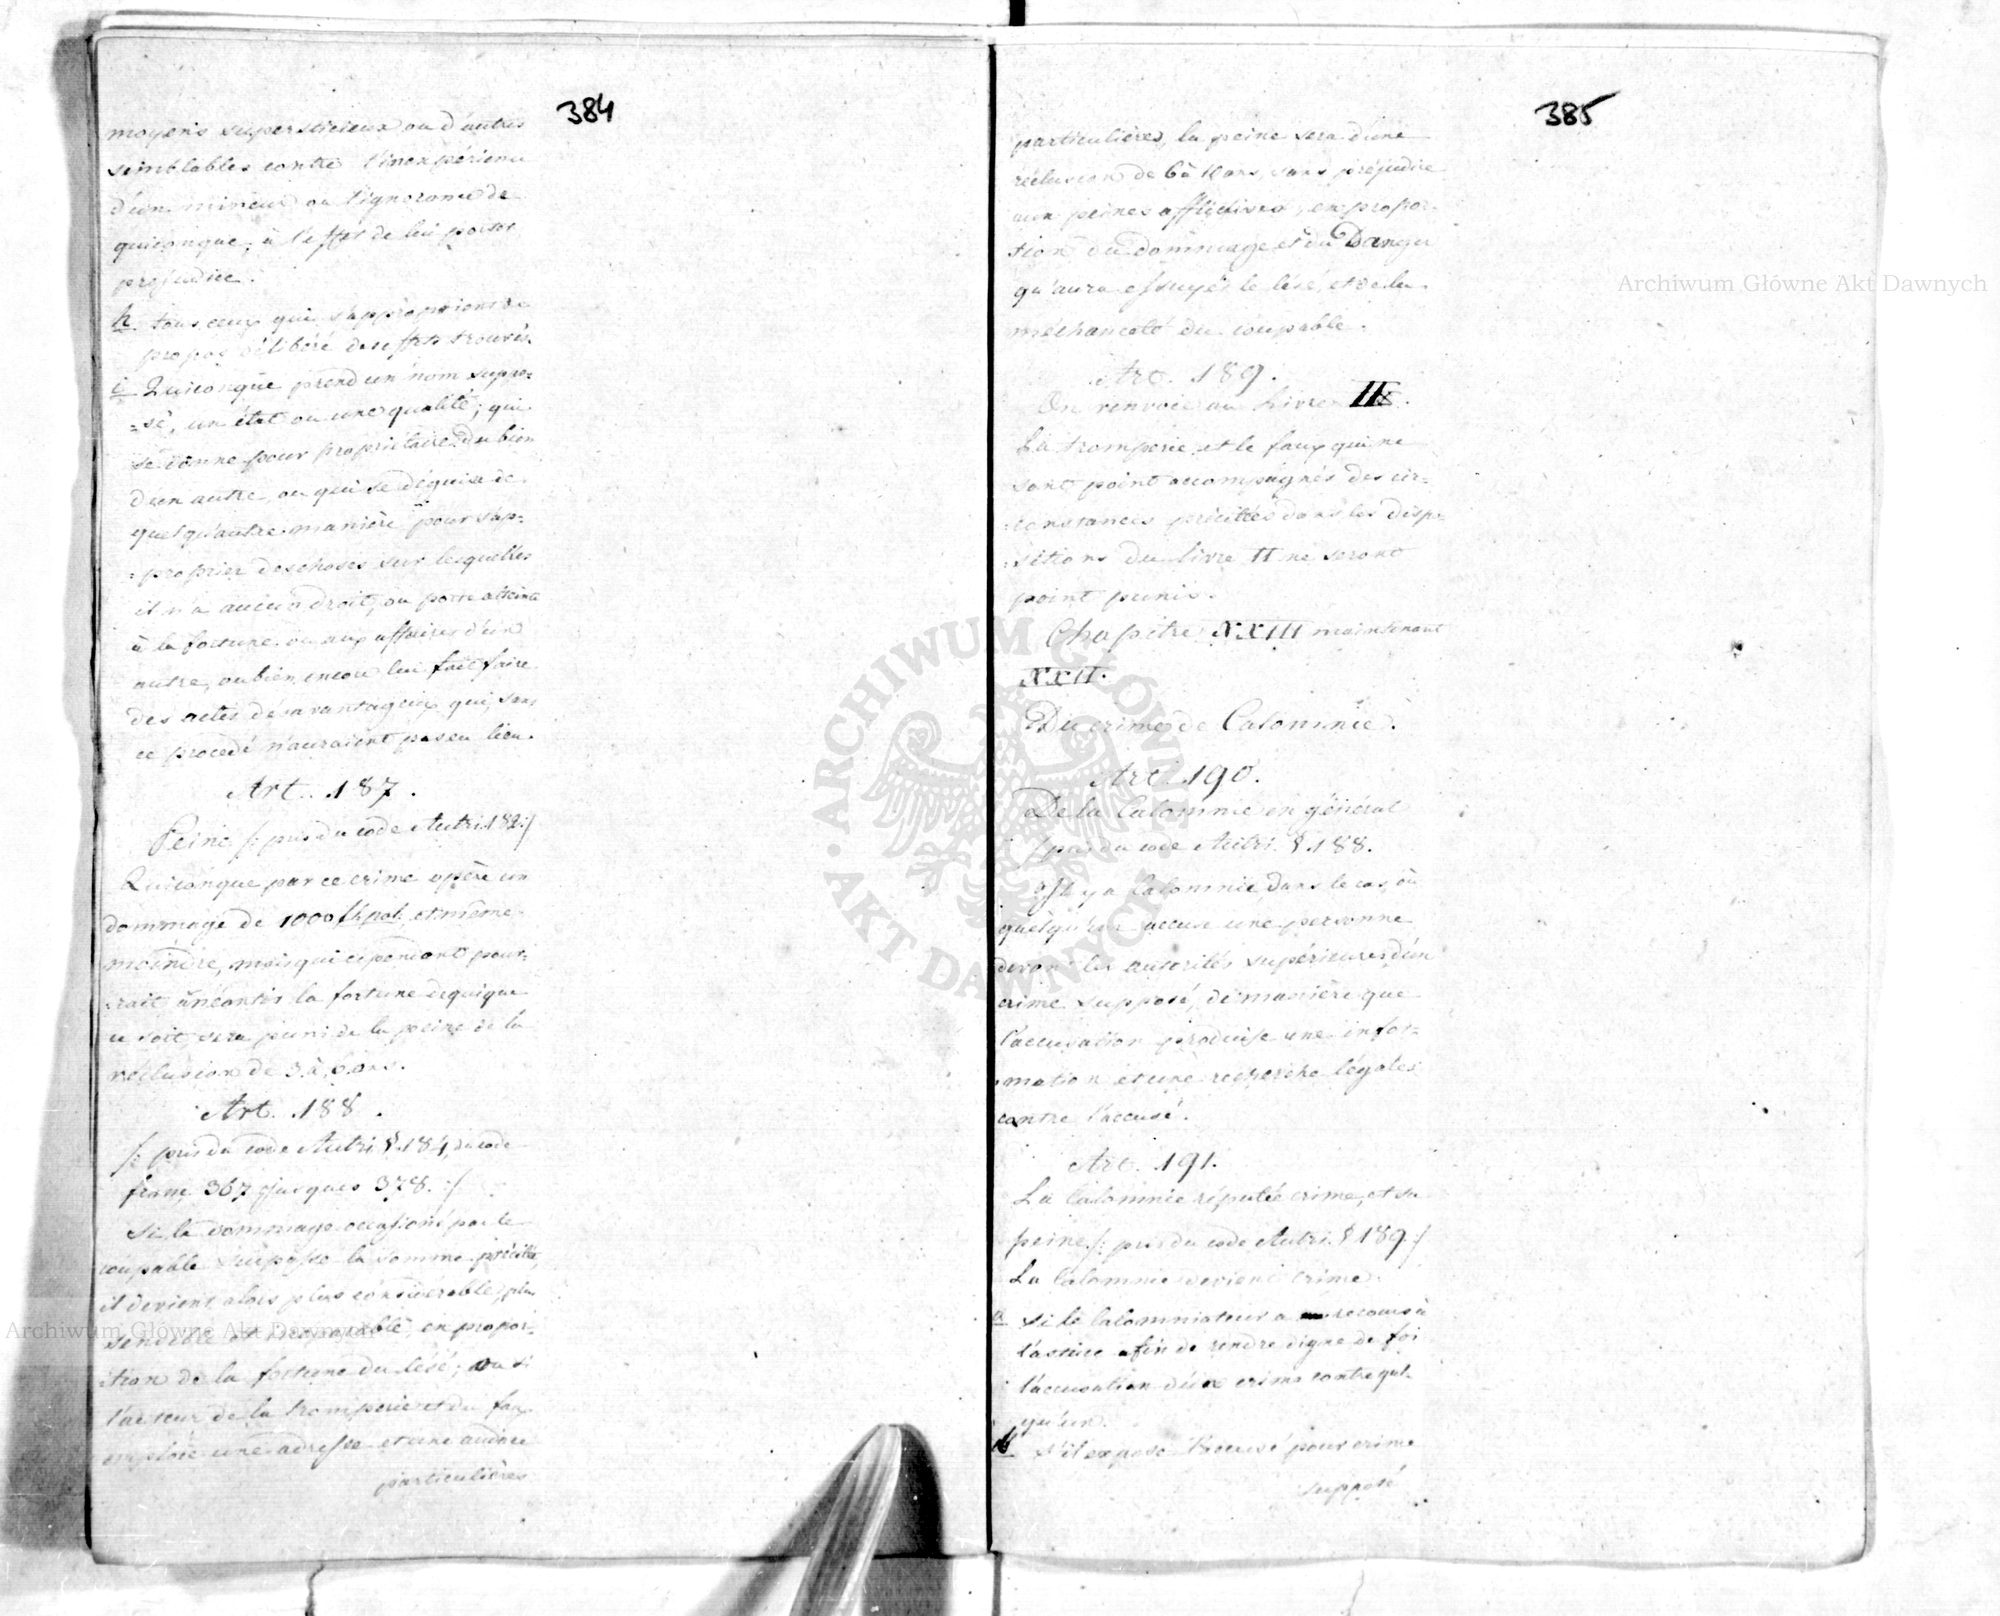 384
moyens superstitieux ou d'autres
semblables contre l'inexpérience
d'un mineur ou l'ignorance de
quiconque, à l'effet de lui porter
préjudice.
h. tous ceux qui s'approprient de
propos délibéré des effets trouvés.
i Quiconque prend un nom suppo-
=sé, un état ou une qualité; qui
se donne pour propriétaire du bien
d'un autre, ou qui se déguise de
quelqu'autre manière pour s'ap=
=proprier des choses sur lesquelles
il n'a aucun droit, ou porte atteinte
à la fortune ou aux affaires d'un
autre, ou bien encore lui fait faire
des actes désavantageux qui, sans
ce procedé n'auraient pas eu lieu.
Art. 187.
Peine /: pris du code Autri. 182 :/
Quiconque par ce crime opère un
dommage de 1000 fl. pol. et même
moindre, mais qui cependant pour=
=rait anéantir la fortune de quique
ce soit sera puni de la peine de la
réclusion de 3 à 6 ans.
Art. 188.
/: pris du code Autri § 184, du code
franç 367 jusques 378. :/
Si le dommage occasioné par le
coupable surpasse la somme précitée,
il devient alors plus considérable, plus
sensible et irréparable, en propor-
=tion de la fortune du lésé; ou si
l'acteur de la tromperie et du faux
emploie une adresse et une audace
particulières
385
particulières, la peine sera d'une
réclusion de 6 à 10 ans, sans préjudice
aux peines afflictives, en propor-
tion du dommage et du Danger
qu'aura essuyés le lésé, et de la
méchanceté du coupable.
Art. 189.
On renvoie au Livre II.
La tromperie et le faux qui ne
sont point accompagnés des cir=
=constances précitées dans les dispo
=sitions du livre II ne seront
point punis.
Chapitre XXIII maintenant
XXII.
Du crime de Calomnie.
Art. 190.
De la Calomnie en général
/: pris du code Autri. § 188.
Il y a Calomnie, dans le cas, où
quelqu'un accuse une personne
devant les autorités supérieures d'un
crime supposé, de manière que
l'accusation produise une infor=
=mation et une recherche légales
contre l'accusé.
Art. 191.
La Calomnie réputée crime, et sa
peine /: pris du code Autri. § 189 :/
La Calomnie devient crime.
a si le Calomniateur a recours à
l'astuce afin de rendre digne de foi
l'accusation d'un crime contre quel-
qu'un.
b s'il expose l'accusé pour crime
supposé
Archiwum Główne Akt Dawnych
Archiwum Główne Akt Dawnych
ARCHIWUM GŁÓWNE AKT DAWNYCH